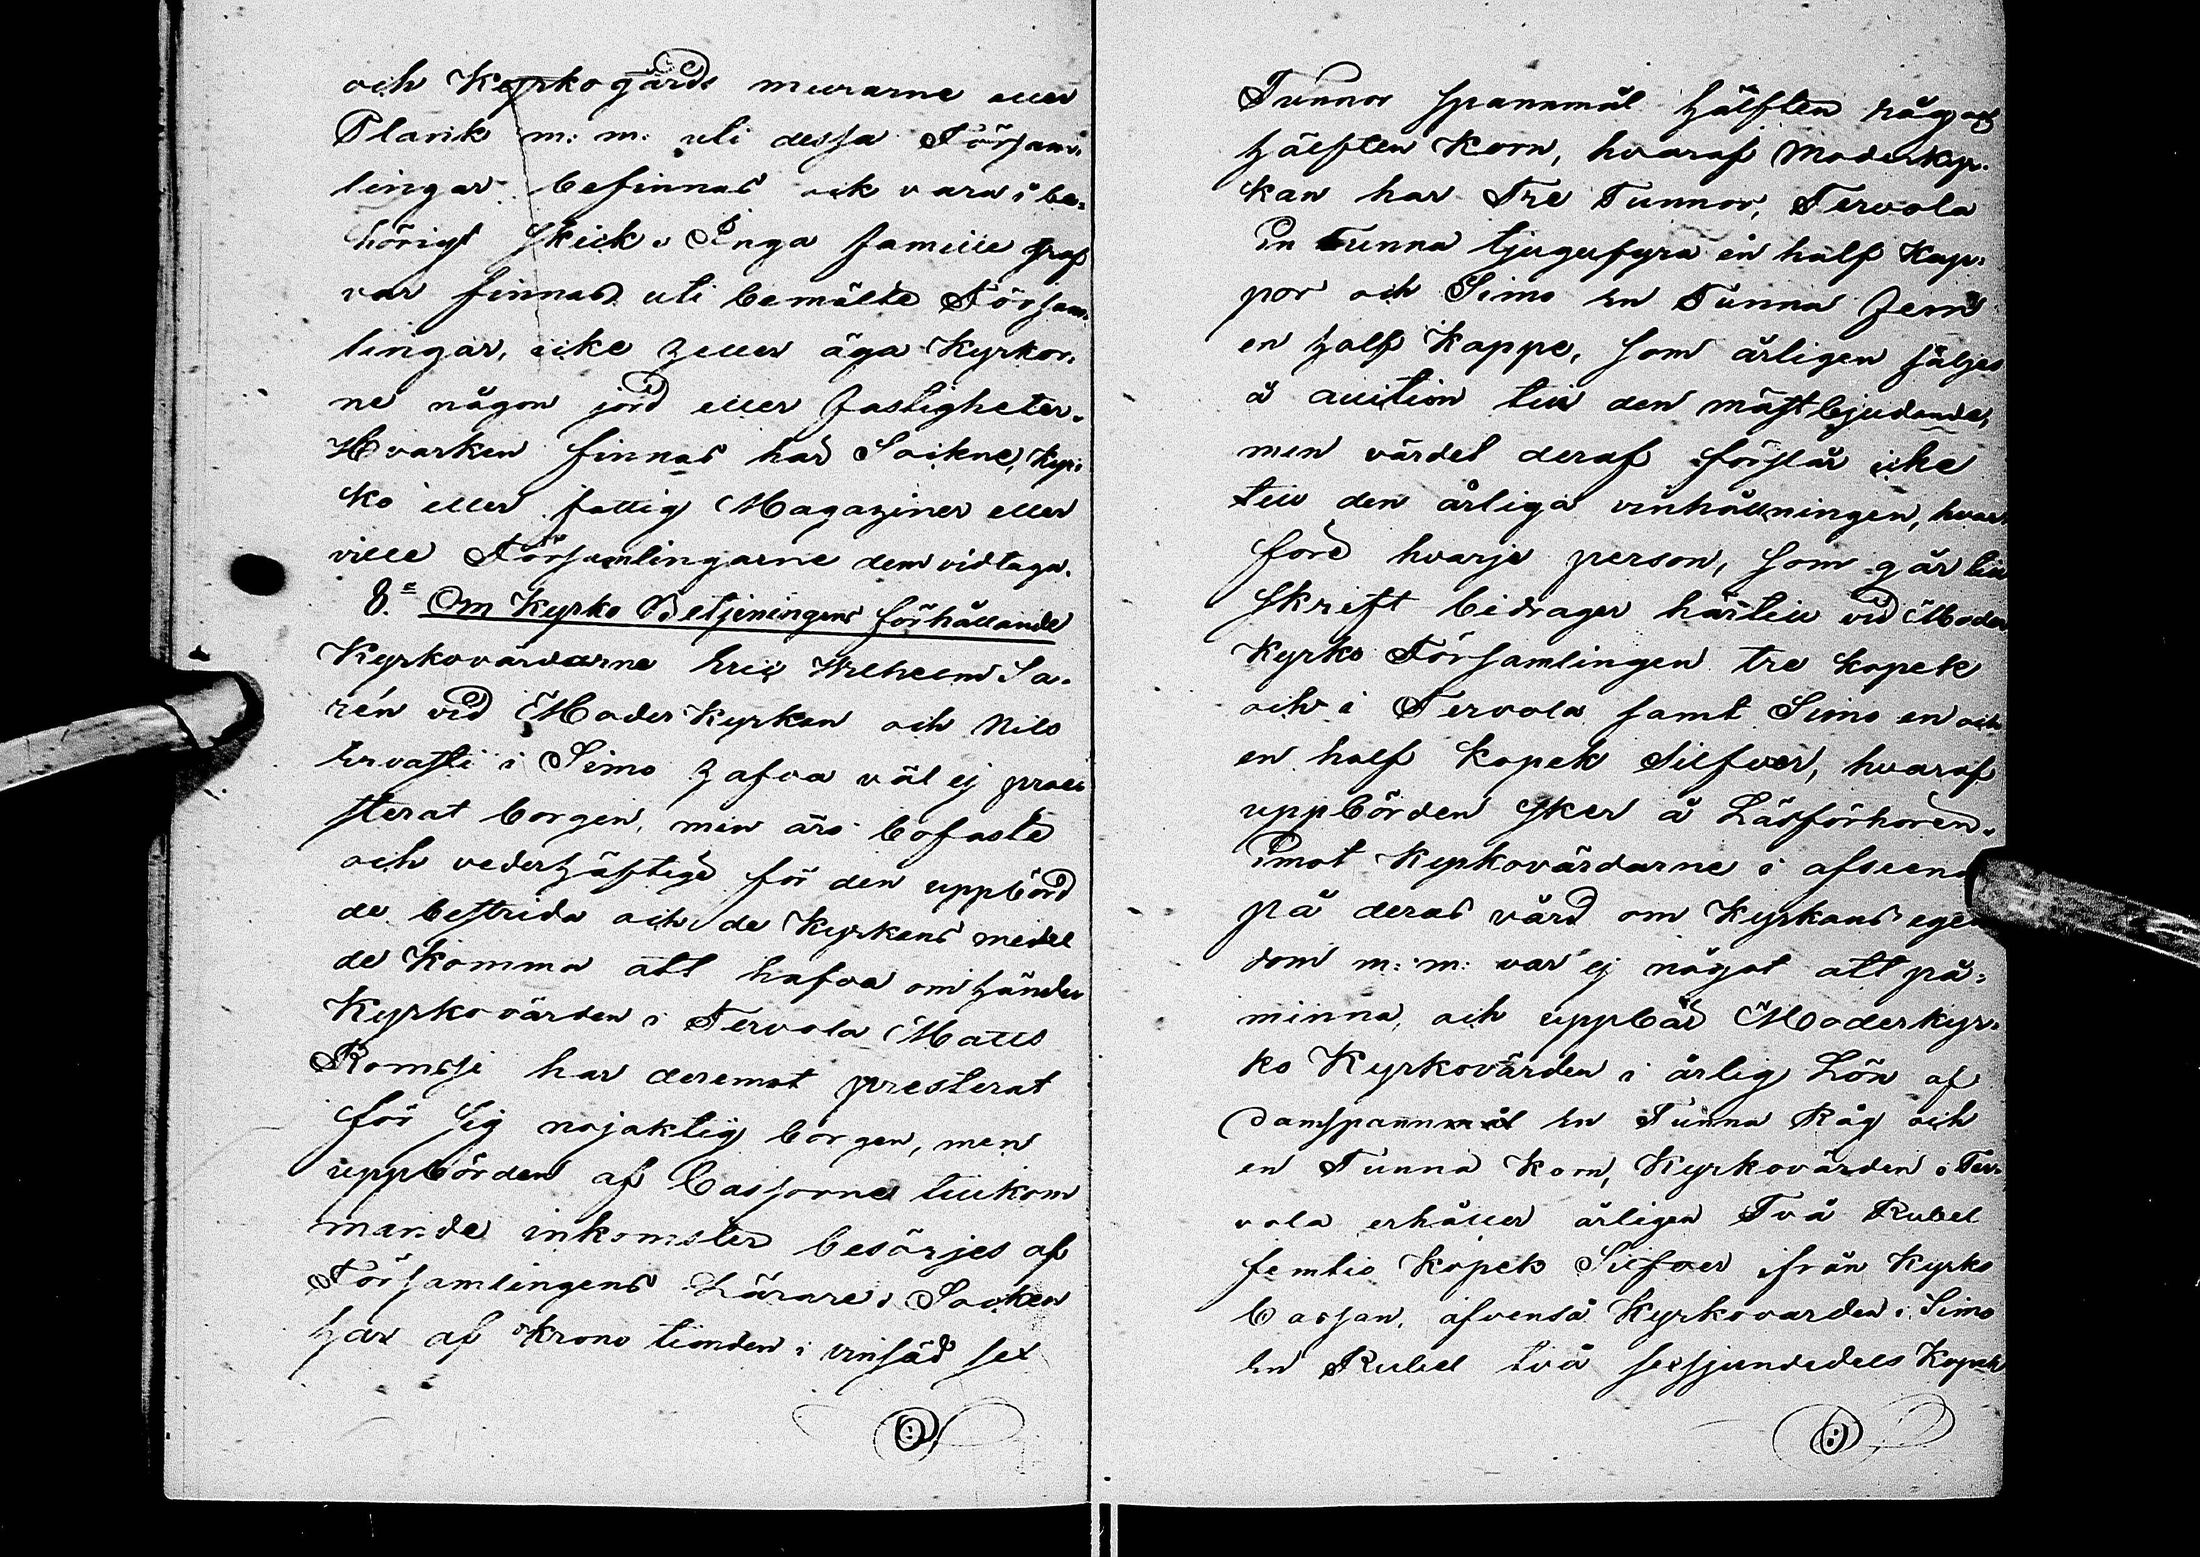 och Kyrkogårds murarne eller
Plank m: m: uti dessa Försam-
lingar befinnas ock vara i be-
hörigt skick. Inga familie graf
var finnas uti bemälte Försam-
lingar, icke heller äga Kyrkor-
ne någon jord eller fastigheter.
Hvarken finnas här Sockne, Kyr-
ko eller fattig Magaziner eller
ville Församlingarne dem vidtaga.
8.° Om Kyrko Betjeningens förhållande
Kyrkovärdarne Eric Wilhelm Sa-
rén vid Moder Kyrkan och Nils
Ervasti i Simo hafva väl ej præ-
sterat borgen, men äro bofaste
och vederhäftige för den uppbörd
de bestrida och de Kyrkans medel
de komma att hafva om händer
Kyrkovärden i Tervola Matts
Romssi har deremot presterat
för sig nöjaktig borgen, men
uppbörden af Cassorne tillkom
mande inkomster besörjes af
Församlingens Lärare. Socken
har af Krono tionden i vinsäd sex
Tunnor spannmål hälften råg och
hälften Korn, hvaraf Moderkyr-
kan har Tre Tunnor, Tervola
En Tunna tjugufyra en half Kap-
por och Simo En Tunna fem
en half Kappe, som årligen säljes
å auction till den mästbjudande,
men värdet deraf förslår icke
till den årliga vinhållningen, hvar
före hvarje person, som går till
skrift bidrager härtill vid Moder
Kyrko Församlingen tre kopek
och i Tervola samt Simo en och
en half kopek Silfver, hvaraf
uppbörden sker å Läsförhören.
Emot Kyrkovärdarne i afseende
på deras vård om Kyrkans egen
dom m: m: var ej något att på-
minna, och uppbär Moderkyr-
ko Kyrkovärden i årlig Lön af
Samspannmål En Tunna Råg och
en Tunna Korn, Kyrkovärden i Ter-
vola erhåller årligen Två Rubel
femtio Kopek Silfver ifrån Kyrko
Cassan, äfvenså Kyrkovärden i Simo
En Rubel två sexsjundedels Kopek